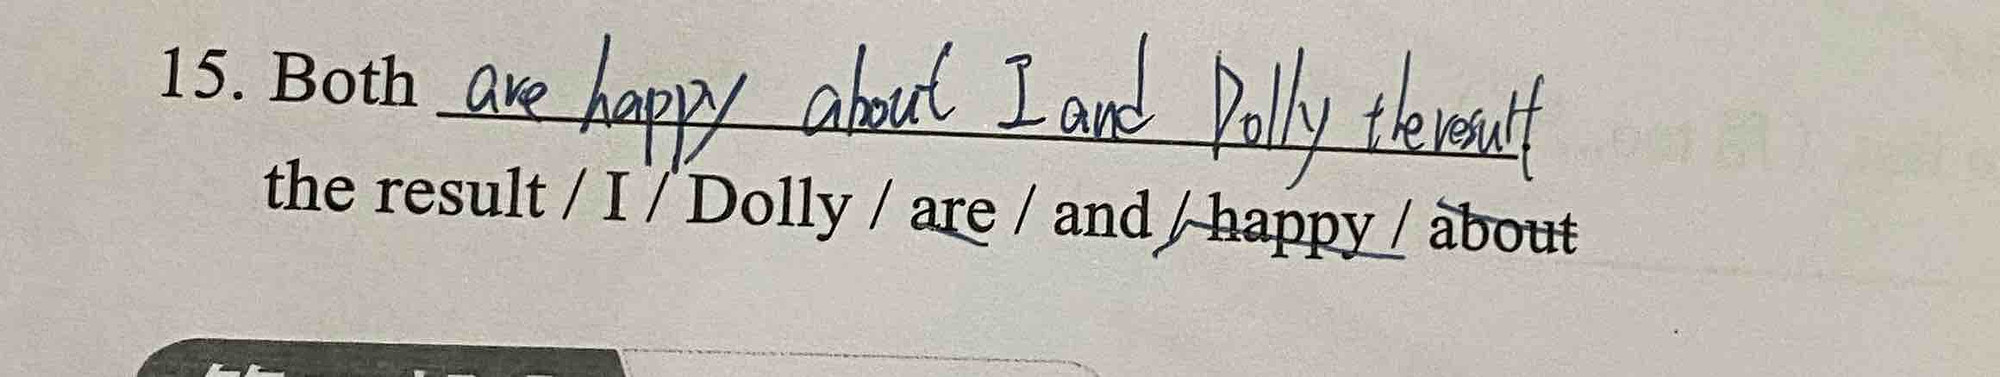 15. Both are happy about I and Dolly the result
the result / I / Dolly / are / and / happy / about